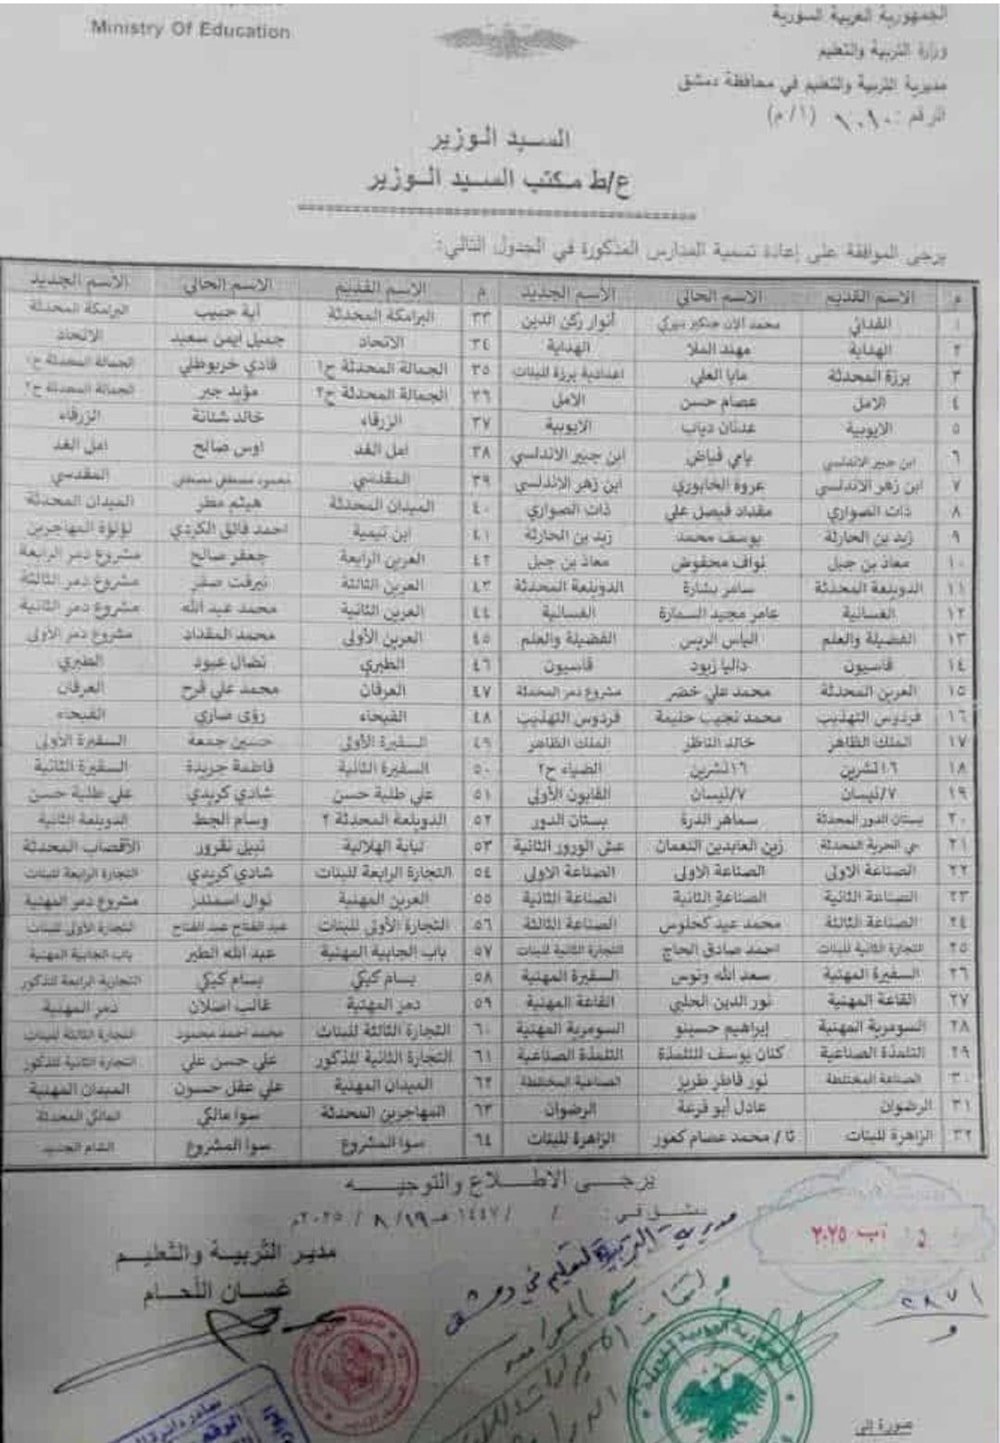 Ministry Of Education
الجمهورية العربية السورية
وزارة التربية والتعليم
مديرية التربية والتعليم في محافظة دمشق
الرقم: ١٠١٠ (م/١)
السيد الوزير
ع/ط مكتب السيد الوزير
يرجى الموافقة على إعادة تسمية المدارس المذكورة في الجدول التالي:
م الاسم القديم الاسم الحالي الأسم الجديد م الاسم القديم الاسم الحالي الأسم الجديد
١ الفدائي محمد الان جنكيز بيركي أنوار ركن الدين ٣٣ البرامكة المحدثة آية حبيب البرامكة المحدثة
٢ الهداية مهند الملا الهداية ٣٤ الاتحاد جميل ايمن سعيد الاتحاد
٣ برزة المحدثة مايا العلي اعدادية برزة للبنات ٣٥ الجمالة المحدثة ح١ فادي خربوطلي الجمالة المحدثة ح١
٤ الامل عصام حسن الامل ٣٦ الجمالة المحدثة ح٢ مؤيد جبر الجمالة المحدثة ح٢
٥ الايوبية عدنان دياب الايوبية ٣٧ الزرقاء خالد شتاتة الزرقاء
٦ ابن جبير الاندلسي يامي فياض ابن جبير الاندلسي ٣٨ امل الغد اوس صالح امل الغد
٧ ابن زهر الاندلسي عروة الخابوري ابن زهر الاندلسي ٣٩ المقدسي محمود مصطفى مصطفى المقدسي
٨ ذات الصواري مقداد فيصل علي ذات الصواري ٤٠ الميدان المحدثة هيثم مطر الميدان المحدثة
٩ زيد بن الحارثة يوسف محمد زيد بن الحارثة ٤١ ابن تيمية احمد فائق الكردي لؤلؤة المهاجرين
١٠ معاذ بن جبل نواف محفوض معاذ بن جبل ٤٢ العرين الرابعة جعفر صالح مشروع دمر الرابعة
١١ الدويلعة المحدثة سامر بشارة الدويلعة المحدثة ٤٣ العرين الثالثة نيرفت صقر مشروع دمر الثالثة
١٢ الغسانية عامر مجيد السمارة الغسانية ٤٤ العرين الثانية محمد عبد الله مشروع دمر الثانية
١٣ الفضيلة والعلم الياس الريس الفضيلة والعلم ٤٥ العرين الأولى محمد المقداد مشروع دمر الأولى
١٤ قاسيون داليا زيود قاسيون ٤٦ الطبري نضال عبود الطبري
١٥ العرين المحدثة محمد علي خضر مشروع دمر المحدثة ٤٧ العرفان محمد علي فرح العرفان
١٦ فردوس التهذيب محمد نجيب حليمة فردوس التهذيب ٤٨ الفيحاء رؤى صاري الفيحاء
١٧ الملك الظاهر خالد الناظر الملك الظاهر ٤٩ السفيرة الأولى حسين جمعة السفيرة الأولى
١٨ ١٦تشرين ١٦تشرين الضياء ح٢ ٥٠ السفيرة الثانية فاطمة جريدة السفيرة الثانية
١٩ ٧/نيسان ٧/نيسان القابون الأولى ٥١ علي طلبة حسن شادي كريدي علي طلبة حسن
٢٠ بستان الدور المحدثة سماهر الدرة بستان الدور ٥٢ الدويلعة المحدثة ٢ وسام الجط الدويلعة الثانية
٢١ حي الحرية المحدثة زين العابدين النعمان عش الورور الثانية ٥٣ لبابة الهلالية نبيل نقرور الأقصاب المحدثة
٢٢ الصناعة الاولى الصناعة الاولى الصناعة الاولى ٥٤ التجارة الرابعة للبنات شادي كريدي التجارة الرابعة للبنات
٢٣ الصناعة الثانية الصناعة الثانية الصناعة الثانية ٥٥ العرين المهنية نوال اسمندر مشروع دمر المهنية
٢٤ الصناعة الثالثة محمد عيد كحلوس الصناعة الثالثة ٥٦ التجارة الأولى للبنات عبد الفتاح عبد الفتاح التجارة الأولى للبنات
٢٥ التجارة الثانية للبنات احمد صادق الحاج التجارة الثانية للبنات ٥٧ باب الجابية المهنية عبد الله الطير باب الجابية المهنية
٢٦ السفيرة المهنية سعد الله ونوس السفيرة المهنية ٥٨ بسام كيكي بسام كيكي التجارية الرابعة للذكور
٢٧ القاعة المهنية نور الدين الحلبي القاعة المهنية ٥٩ دمر المهنية غالب اصلان دمر المهنية
٢٨ السومرية المهنية إبراهيم حسينو السومرية المهنية ٦٠ التجارة الثالثة للبنات محمد احمد محمود التجارة الثالثة للبنات
٢٩ التلمذة الصناعية كنان يوسف للتلمذة التلمذة الصناعية ٦١ التجارة الثانية للذكور علي حسن علي التجارة الثانية للذكور
٣٠ الصناعة المختلطة نور فاطر طريز الصناعية المختلطة ٦٢ الميدان المهنية علي عقل حسون الميدان المهنية
٣١ الرضوان عادل أبو قرعة الرضوان ٦٣ المهاجرين المحدثة سوا مالكي المالكي المحدثة
٣٢ الزاهرة للبنات ثا/ محمد عصام كعور الزاهرة للبنات ٦٤ سوا المشروع سوا المشروع الشام الجديد
يرجى الاطلاع والتوجيه
دمشق في: / /١٤٤٧هـ ١٩/ ٨ /٢٠٢٥م
مدير التربية والتعليم
غسان اللحام
مديرية التربية والتعليم في دمشق
آب ٢٠٢٥
٢٨٧١
صورة إلى